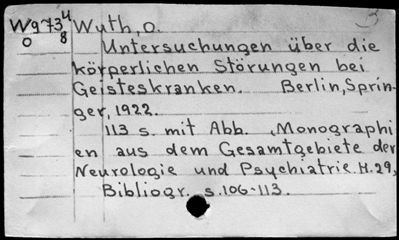 W973 4 Wuth, O.
O 8
Untersuchungen über die
körperlichen Störungen bei
Geisteskranken. Berlin, Sprin-
ger, 1922.
113 s. mit Abb. (Monographi
en aus dem Gesamtgebiete der
Neurologie und Psychiatrie. H. 29,
Bibliogr. s. 106-113.